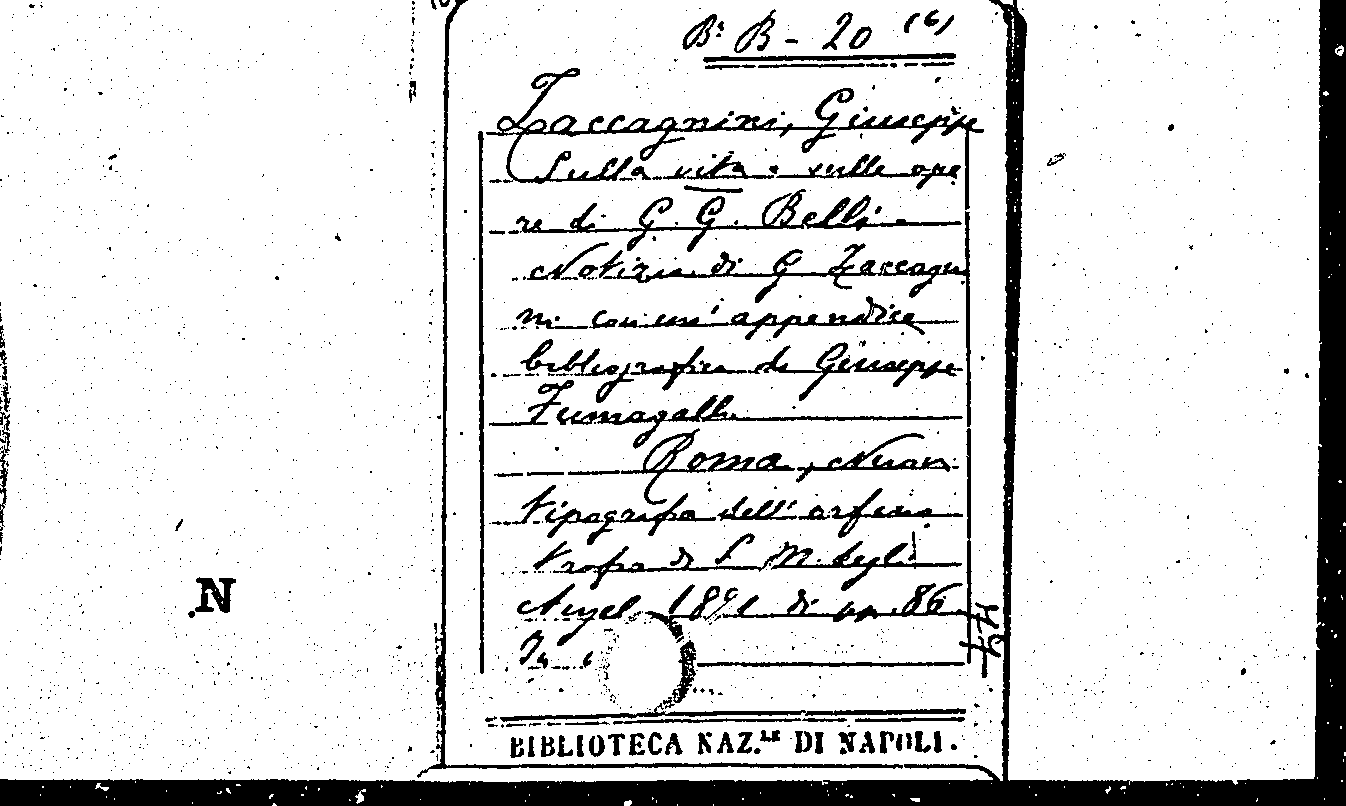 Bª B - 20 (6)
Zaccagnini, Giuseppe
Sulla vita e sulle ope
re di G. G. Belli.
Notizia di G Zaccagni
ni con un' appendice
bibliografica di Giuseppe
Fumagalli.
Roma, Nuova
tipografia dell' orfano
trofio di S. M. degli
Angeli 1891 di pp. 86
In
N
BIBLIOTECA NAZ.LE DI NAPOLI.